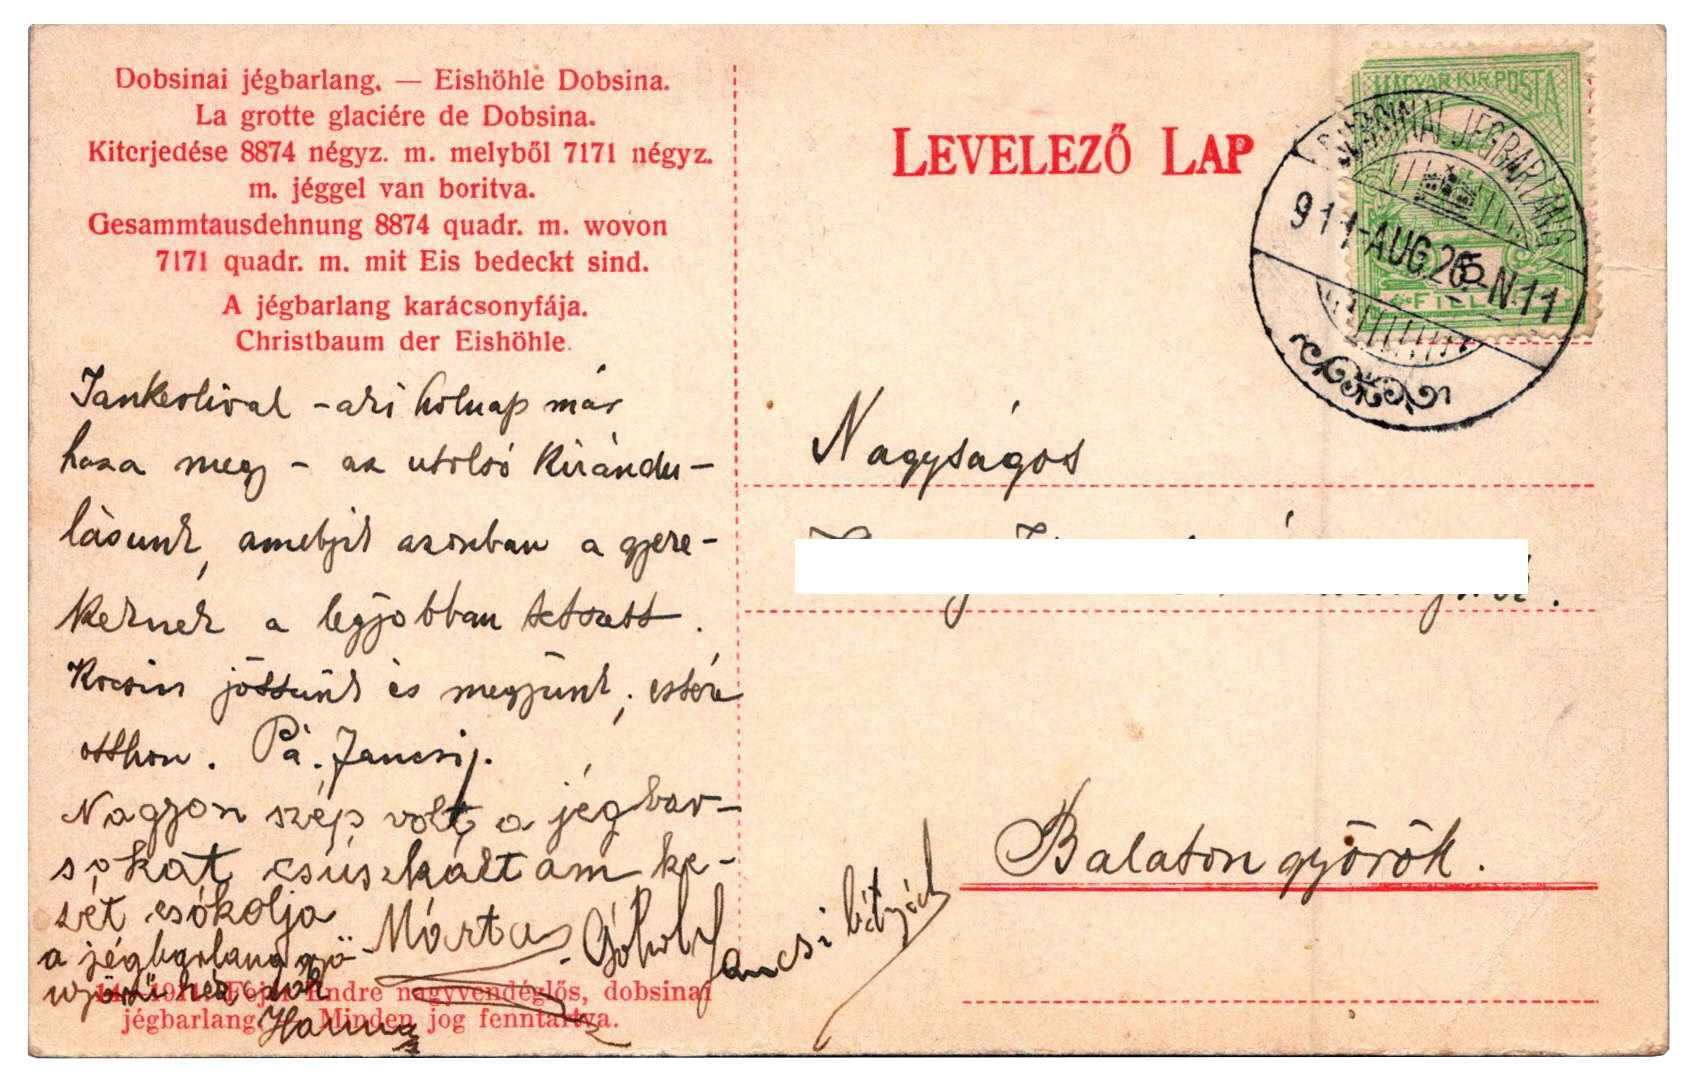 Dobsinai jégbarlang. — Eishöhle Dobsina.
La grotte glaciére de Dobsina.
Kiterjedése 8874 négyz. m. melyből 7171 négyz.
m. jéggel van boritva.
Gesammtausdehnung 8874 quadr. m. wovon
7171 quadr. m. mit Eis bedeckt sind.
A jégbarlang karácsonyfája.
Christbaum der Eishöhle.
LEVELEZŐ LAP
MAGYAR KIR. POSTA
FILL
DOBSINAI JÉGBARLANG
911-AUG.26-N-11
holnap már
haza megy – az utolsó kirándu-
lásunk, amelyik azonban a gyere-
keknek a legjobban tetszett.
Kocsin jöttünk és megyünk, estére
otthon. Pá. Jancsi.
Nagyon szép volt a jégbar-
csúszkáltam ke-
zét csókolja
Márta
a jégbarlang gyö-
Hanna
Jancsi bátyád
Nagyságos
Balatongyörök.
Fejér Endre nagyvendéglős, dobsinai
jégbarlang. Minden jog fenntartva.